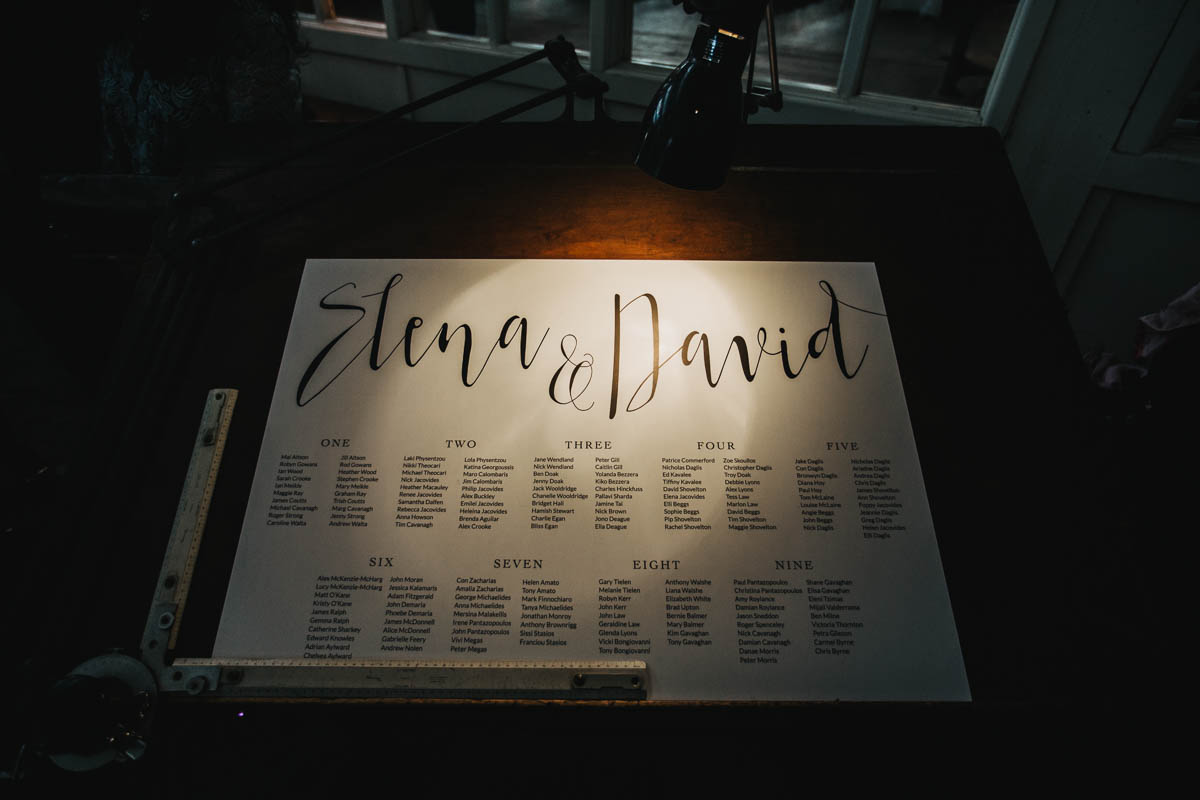 Elena & David
ONE
Mal Aitson
Robyn Gowans
Ian Wood
Sarah Crooke
Ian Meikly
Maggie Ray
James Coutts
Michael Cavanagh
Roger Strong
Caroline Walta
Jill Aitson
Rod Gowans
Heather Wood
Stephen Crooke
Mary Meikle
Graham Ray
Trish Coutts
Marg Cavanagh
Jenny Strong
Andrew Walta
TWO
Laki Physentzou
Nikki Theocari
Michael Theocari
Nick Jacovides
Heather Macauley
Renee Jacovides
Samantha Dalfen
Rebecca Jacovides
Anna Howson
Tim Cavanagh
Lola Physentzou
Katina Georgoussis
Maro Calombaris
Jim Calombaris
Philip Jacovides
Alex Buckley
Emilei Jacovides
Heleina Jacovides
Brenda Aguilar
Alex Crooke
THREE
Jane Wendland
Nick Wendland
Ben Doak
Jenny Doak
Jack Wooldridge
Chanelle Wooldridge
Bridget Hall
Hamish Stewart
Charlie Egan
Bliss Egan
Peter Gill
Caitlin Gill
Yolanda Bezzera
Kiko Bezzera
Charles Hinckfuss
Pallavi Sharda
Jamine Tai
Nick Brown
Jono Deague
Ella Deague
FOUR
Patrice Commerford
Nicholas Daglis
Ed Kavalee
Tiffiny Kavalee
David Shovelton
Elena Jacovides
Elli Beggs
Sophie Beggs
Pip Shovelton
Rachel Shovelton
Zoe Skoullos
Christopher Daglis
Troy Doak
Debbie Lyons
Alex Lyons
Tess Law
Marlon Law
David Beggs
Tim Shovelton
Maggie Shovelton
FIVE
Jake Daglis
Con Daglis
Bronwyn Daglis
Diana Hoy
Paul Hoy
Tom McLaine
Louise McLaine
Angie Beggs
John Beggs
Nick Daglis
Nicholas Daglis
Ariadne Daglis
Andrea Daglis
Chris Daglis
James Shovelton
Ann Shovelton
Poppy Jacovides
Jeannie Daglis
Greg Daglis
Helen Jacovides
Elli Daglis
SIX
Alex McKenzie-McHarg
Lucy McKenzie-McHarg
Matt O'Kane
Kristy O'Kane
James Ralph
Gemma Ralph
Catherine Sharkey
Edward Knowles
Adrian Aylward
Chelsea Aylward
John Moran
Jessica Kalamaris
Adam Fitzgerald
John Demaria
Phoebe Demaria
James McDonnell
Alice McDonnell
Gabrielle Feery
Andrew Nolen
SEVEN
Con Zacharias
Amalia Zacharias
George Michaelides
Anna Michaelides
Mersina Malakellis
Irene Pantazopoulos
John Pantazopoulos
Vivi Megas
Peter Megas
Helen Amato
Tony Amato
Mark Finnochiaro
Tanya Michaelides
Jonathan Monroy
Anthony Brownrigg
Sissi Stasios
Franciou Stasios
EIGHT
Gary Tielen
Melanie Tielen
Robyn Kerr
John Kerr
John Law
Geraldine Law
Glenda Lyons
Vicki Bongiovanni
Tony Bongiovanni
Anthony Walshe
Liana Walshe
Elizabeth White
Brad Upton
Bernie Balmer
Mary Balmer
Kim Gavaghan
Tony Gavaghan
NINE
Paul Pantazopoulos
Christina Pantazopoulos
Amy Roylance
Damian Roylance
Jason Sneddon
Roger Spenceley
Nick Cavanagh
Damian Cavanagh
Danae Morris
Peter Morris
Shane Gavaghan
Elisa Gavaghan
Eleni Tzimas
Mijail Valderrama
Ben Milne
Victoria Thornton
Petra Glieson
Carmel Byrne
Chris Byrne